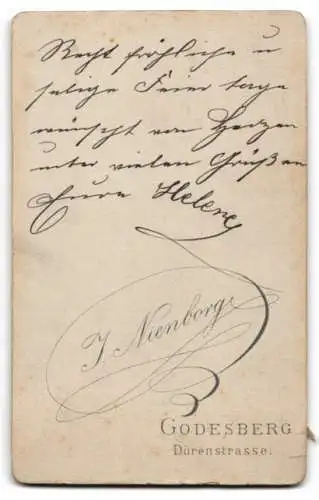 Recht fröhliche u
selige Feiertage
wünscht von Herzen
unter vielen Grüßen
Eure Helene
J. Nienborg
GODESBERG
Dürenstrasse.